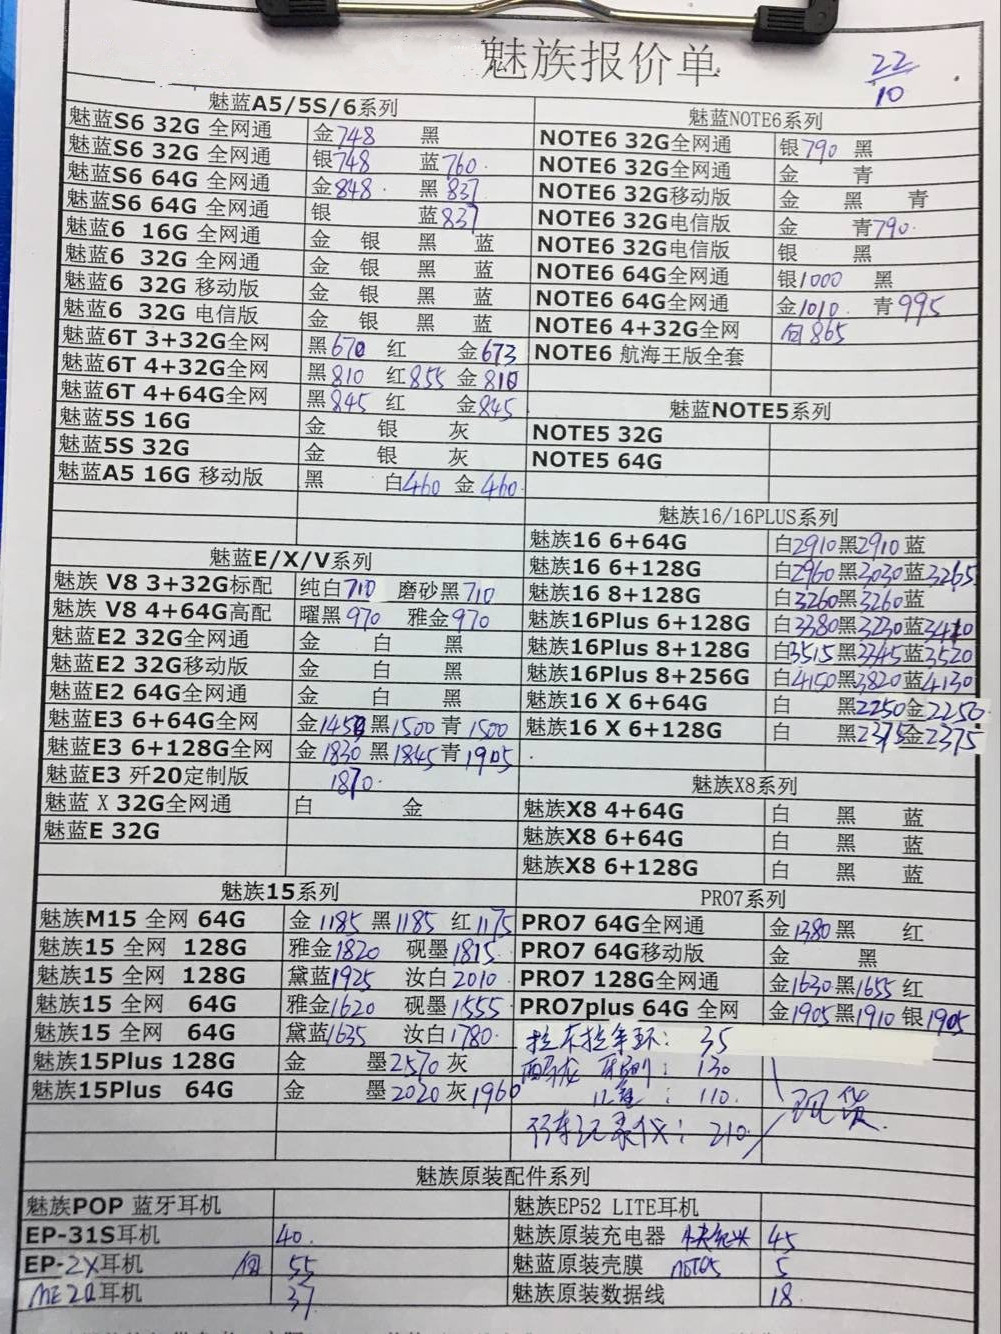 魅族报价单
22/10
魅蓝A5/5S/6系列
魅蓝S6 32G 全网通 金748 黑
魅蓝S6 32G 全网通 银748 蓝760
魅蓝S6 64G 全网通 金848 黑837
魅蓝S6 64G 全网通 银 蓝837
魅蓝6 16G 全网通 金 银 黑 蓝
魅蓝6 32G 全网通 金 银 黑 蓝
魅蓝6 32G 移动版 金 银 黑 蓝
魅蓝6 32G 电信版 金 银 黑 蓝
魅蓝6T 3+32G全网 黑670 红 金673
魅蓝6T 4+32G全网 黑810 红855 金810
魅蓝6T 4+64G全网 黑845 红 金845
魅蓝5S 16G 金 银 灰
魅蓝5S 32G 金 银 灰
魅蓝A5 16G 移动版 黑 白460 金460
魅蓝E/X/V系列
魅族 V8 3+32G标配 纯白710 磨砂黑710
魅族 V8 4+64G高配 曜黑970 雅金970
魅蓝E2 32G全网通 金 白 黑
魅蓝E2 32G移动版 金 白 黑
魅蓝E2 64G全网通 金 白 黑
魅蓝E3 6+64G全网 金1450 黑1500 青1500
魅蓝E3 6+128G全网 金1830 黑1845 青1905
魅蓝E3 歼20定制版 1870
魅蓝 X 32G全网通 白 金
魅蓝E 32G
魅族15系列
魅族M15 全网 64G 金1185 黑1185 红1175
魅族15 全网 128G 雅金1820 砚墨1815
魅族15 全网 128G 黛蓝1925 汝白2010
魅族15 全网 64G 雅金1620 砚墨1555
魅族15 全网 64G 黛蓝1635 汝白1780
魅族15Plus 128G 金 墨2570 灰
魅族15Plus 64G 金 墨2020 灰1960
魅蓝NOTE6系列
NOTE6 32G全网通 银790 黑
NOTE6 32G全网通 金 青
NOTE6 32G移动版 金 黑 青
NOTE6 32G电信版 金 青790
NOTE6 32G电信版 银 黑
NOTE6 64G全网通 银1000 黑
NOTE6 64G全网通 金1010 青995
NOTE6 4+32G全网 865
NOTE6 航海王版全套
魅蓝NOTE5系列
NOTE5 32G
NOTE5 64G
魅族16/16PLUS系列
魅族16 6+64G 白2910黑2910 蓝
魅族16 6+128G 白2960黑3030蓝3265
魅族16 8+128G 白3260黑3260蓝
魅族16Plus 6+128G 白3380黑3230蓝3410
魅族16Plus 8+128G 白3515黑3345蓝3520
魅族16Plus 8+256G 白4150黑3820蓝4130
魅族16 X 6+64G 白 黑2250金2250
魅族16 X 6+128G 白 黑2375金2375
魅族X8系列
魅族X8 4+64G 白 黑 蓝
魅族X8 6+64G 白 黑 蓝
魅族X8 6+128G 白 黑 蓝
PRO7系列
PRO7 64G全网通 金1380黑 红
PRO7 64G移动版 金 黑
PRO7 128G全网通 金1630黑1655 红
PRO7plus 64G 全网 金1905黑1910 银1905
拉卡拉手环：35
130
110
行车记录仪：210
现货
魅族原装配件系列
魅族POP 蓝牙耳机 魅族EP52 LITE耳机
EP-31S耳机 40 魅族原装充电器 45
EP-2X耳机 55 魅蓝原装壳膜 NOTE5 5
ME20耳机 37 魅族原装数据线 18